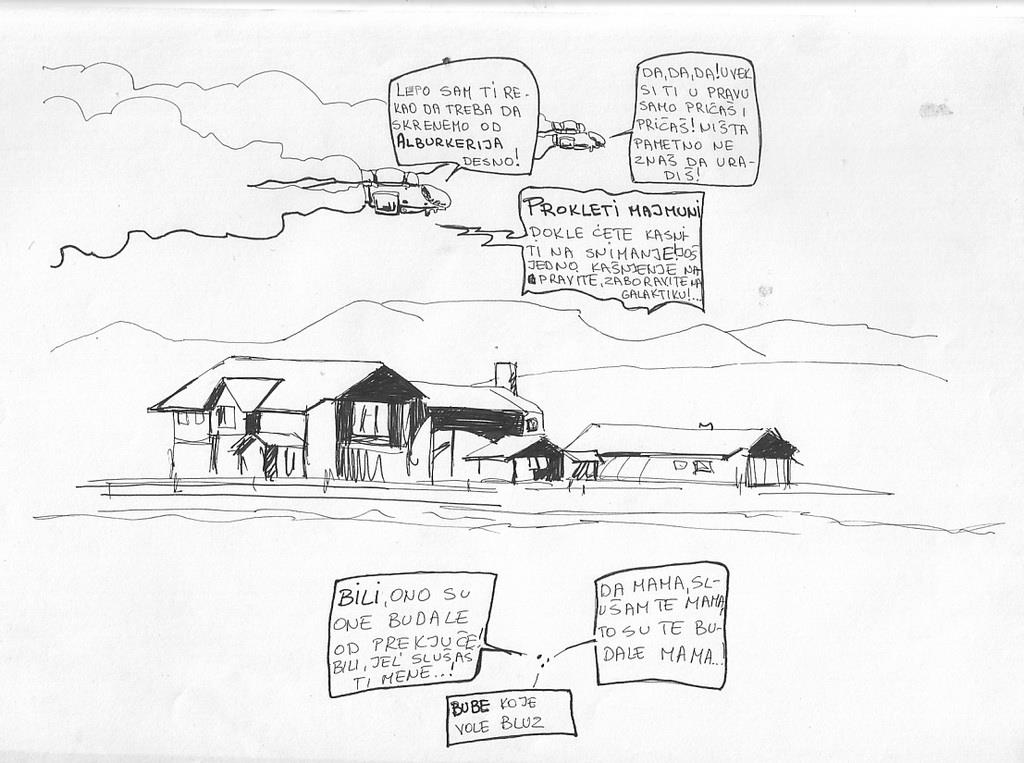 LEPO SAM TI RE-
KAO DA TREBA DA
SKRENEMO OD
ALBURKERIJA
DESNO!
DA, DA, DA! UVEK
SI TI U PRAVU
SAMO PRIČAŠ I
PRIČAŠ! NIŠTA
PAMETNO NE
ZNAŠ DA URA-
DIŠ!
PROKLETI MAJMUNI
DOKLE ĆETE KASNI-
TI NA SNIMANJE! JOŠ
JEDNO KAŠNJENJE NA
PRAVITE, ZABORAVITE NA
GALAKTIKU!...
BILI, ONO SU
ONE BUDALE
OD PREKJUČE!
BILI, JEL' SLUŠAŠ
TI MENE..!
DA MAMA, SL-
UŠAM TE MAMA,
TO SU TE BU-
DALE MAMA...
BUBE KOJE
VOLE BLUZ